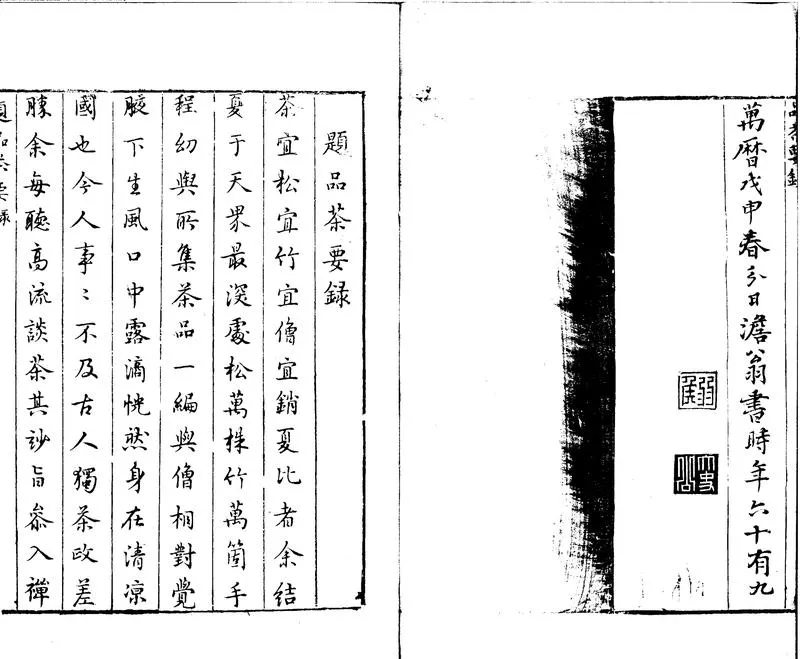 品茶要録
萬曆戊申春分日澹翁書時年六十有九
題品茶要録
茶宜松宜竹宜僧宜銷夏比者余結
夏于天界最深處松萬株竹萬箇手
程幼輿所集茶品一編與僧相對覺
腋下生風口中露滴恍然身在清涼
國也今人事〻不及古人獨茶政差
勝余每聽高流談茶其妙旨叅入禪
題品茶要録